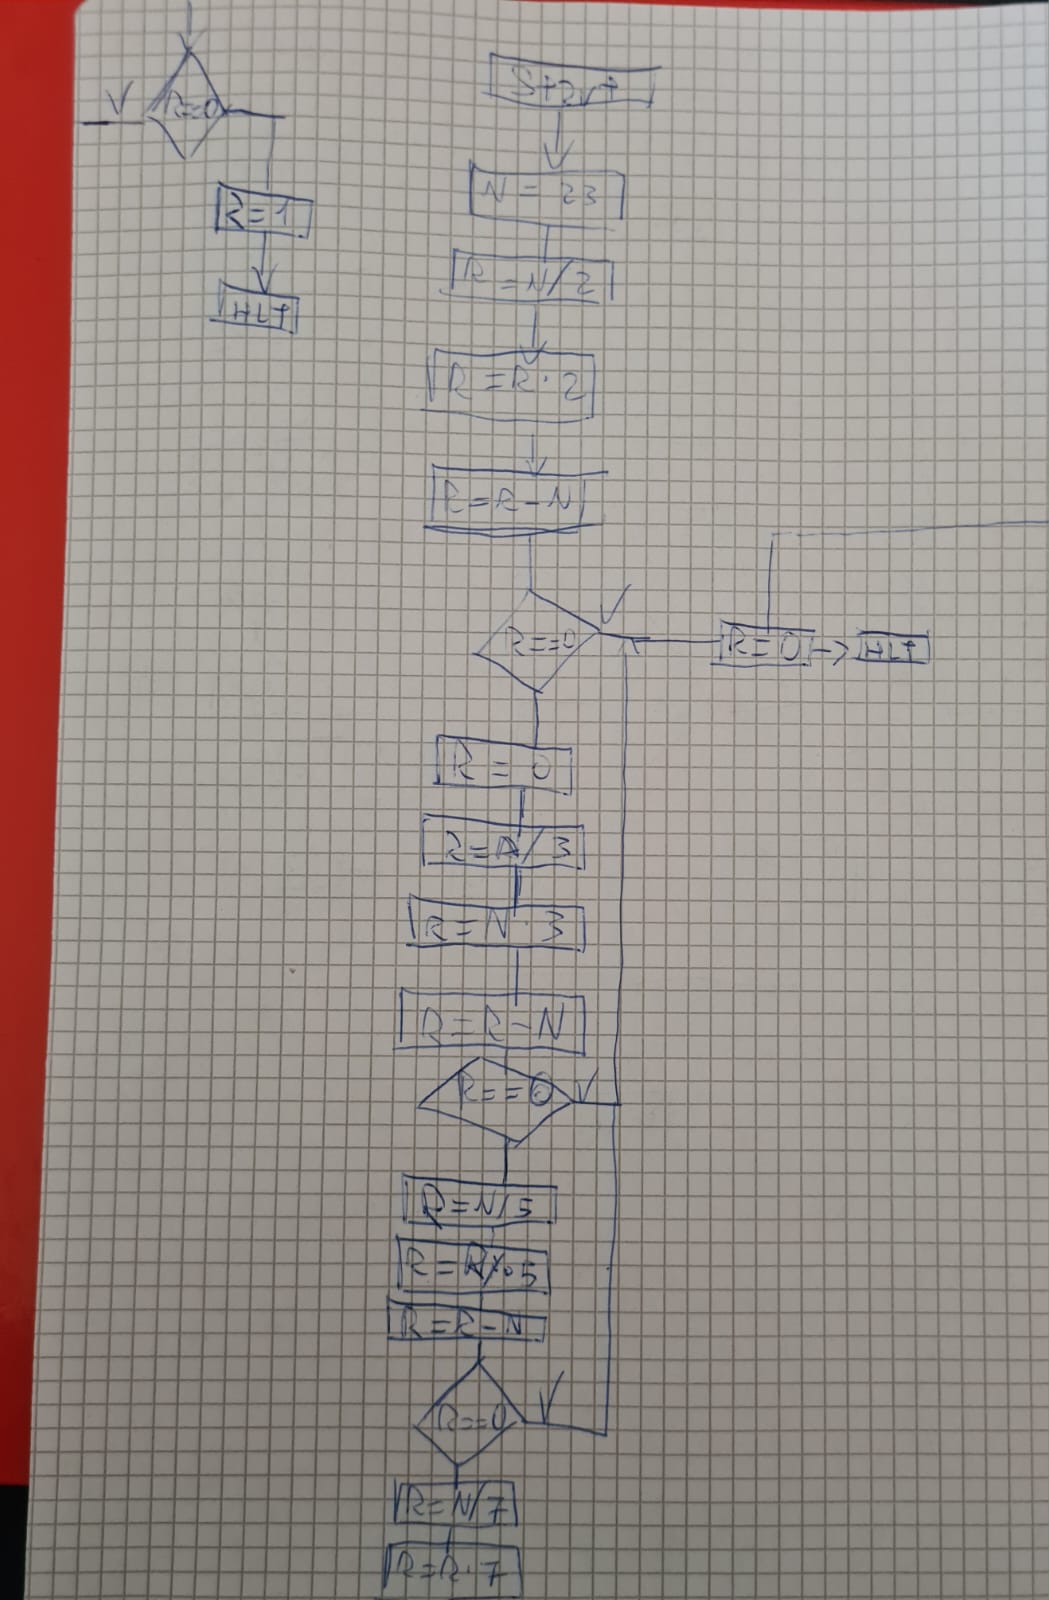 R==0
R=1
HLT
Start
N = 23
R = N/2
R = R · 2
R = R - N
R==0
R=0
HLT
R = 0
R = R/3
R = N · 3
R = R - N
R==0
R = N/5
R = R · 5
R = R - N
R==0
R = N/7
R = R · 7